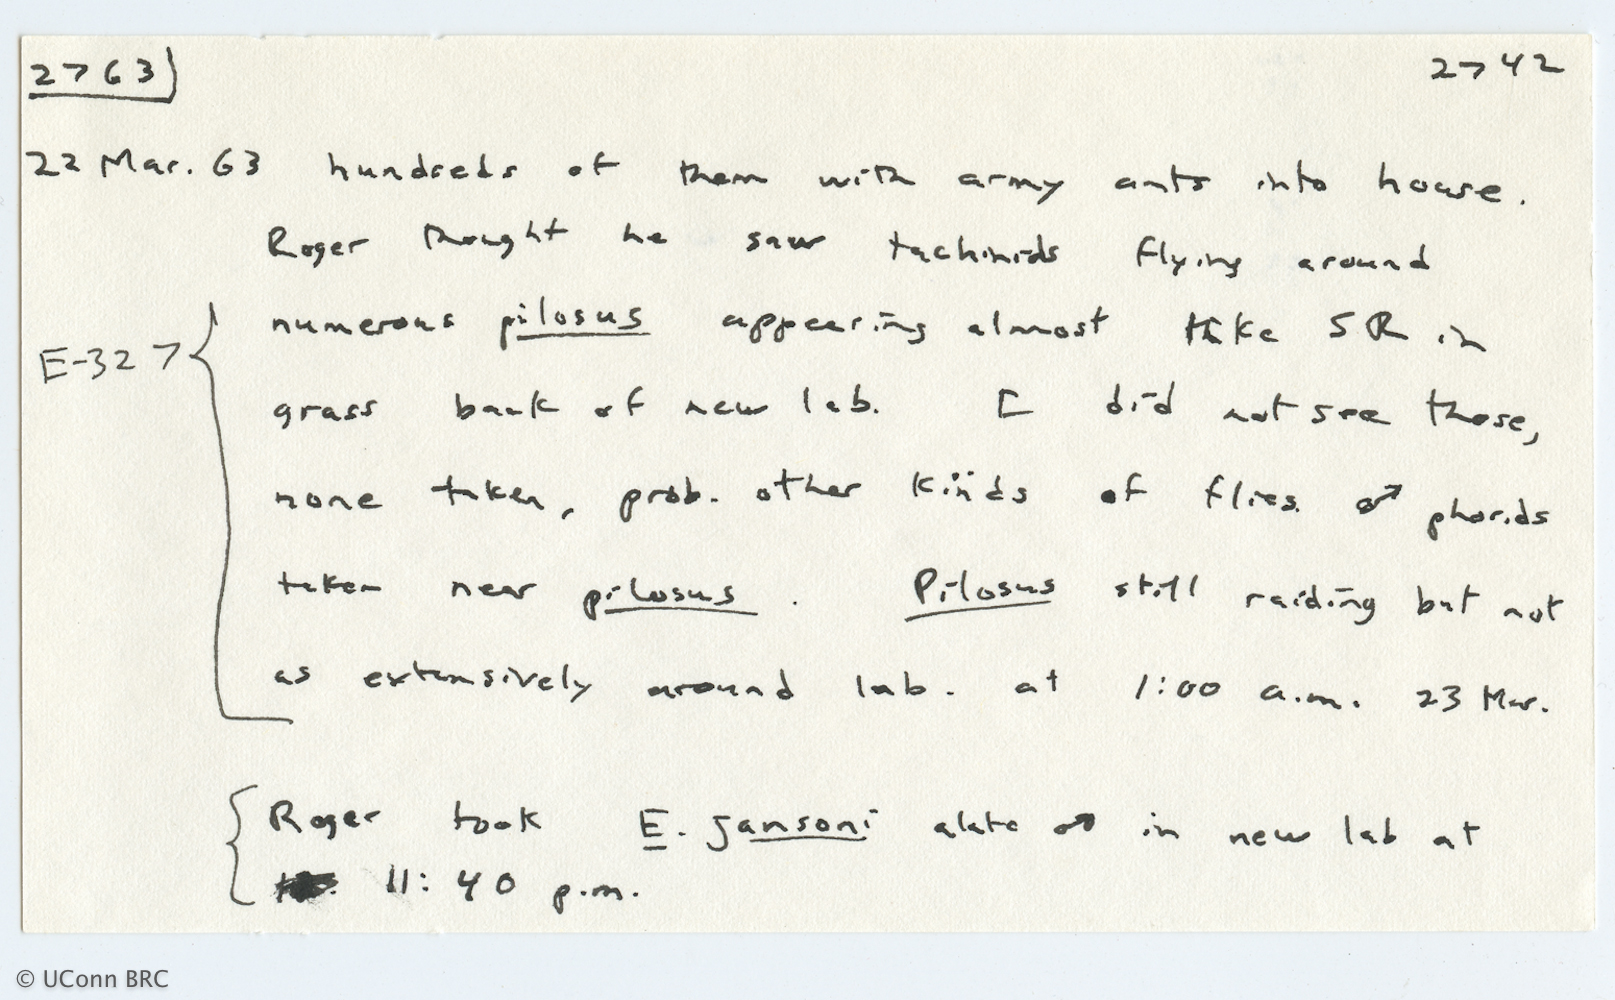 2763 2742
22 Mar. 63 hundreds of them with army ants into house.
Roger thought he saw tachinids flying around
numerous pilosus appearing almost like SR in
E-327
grass back of new lab. I did not see those,
none taken, prob. other kinds of flies. ♂ phorids
taken near pilosus. Pilosus still raiding but not
as extensively around lab. at 1:00 a.m. 23 Mar.
Roger took E. jansoni alate ♂ in new lab at
11:40 p.m.
© UConn BRC